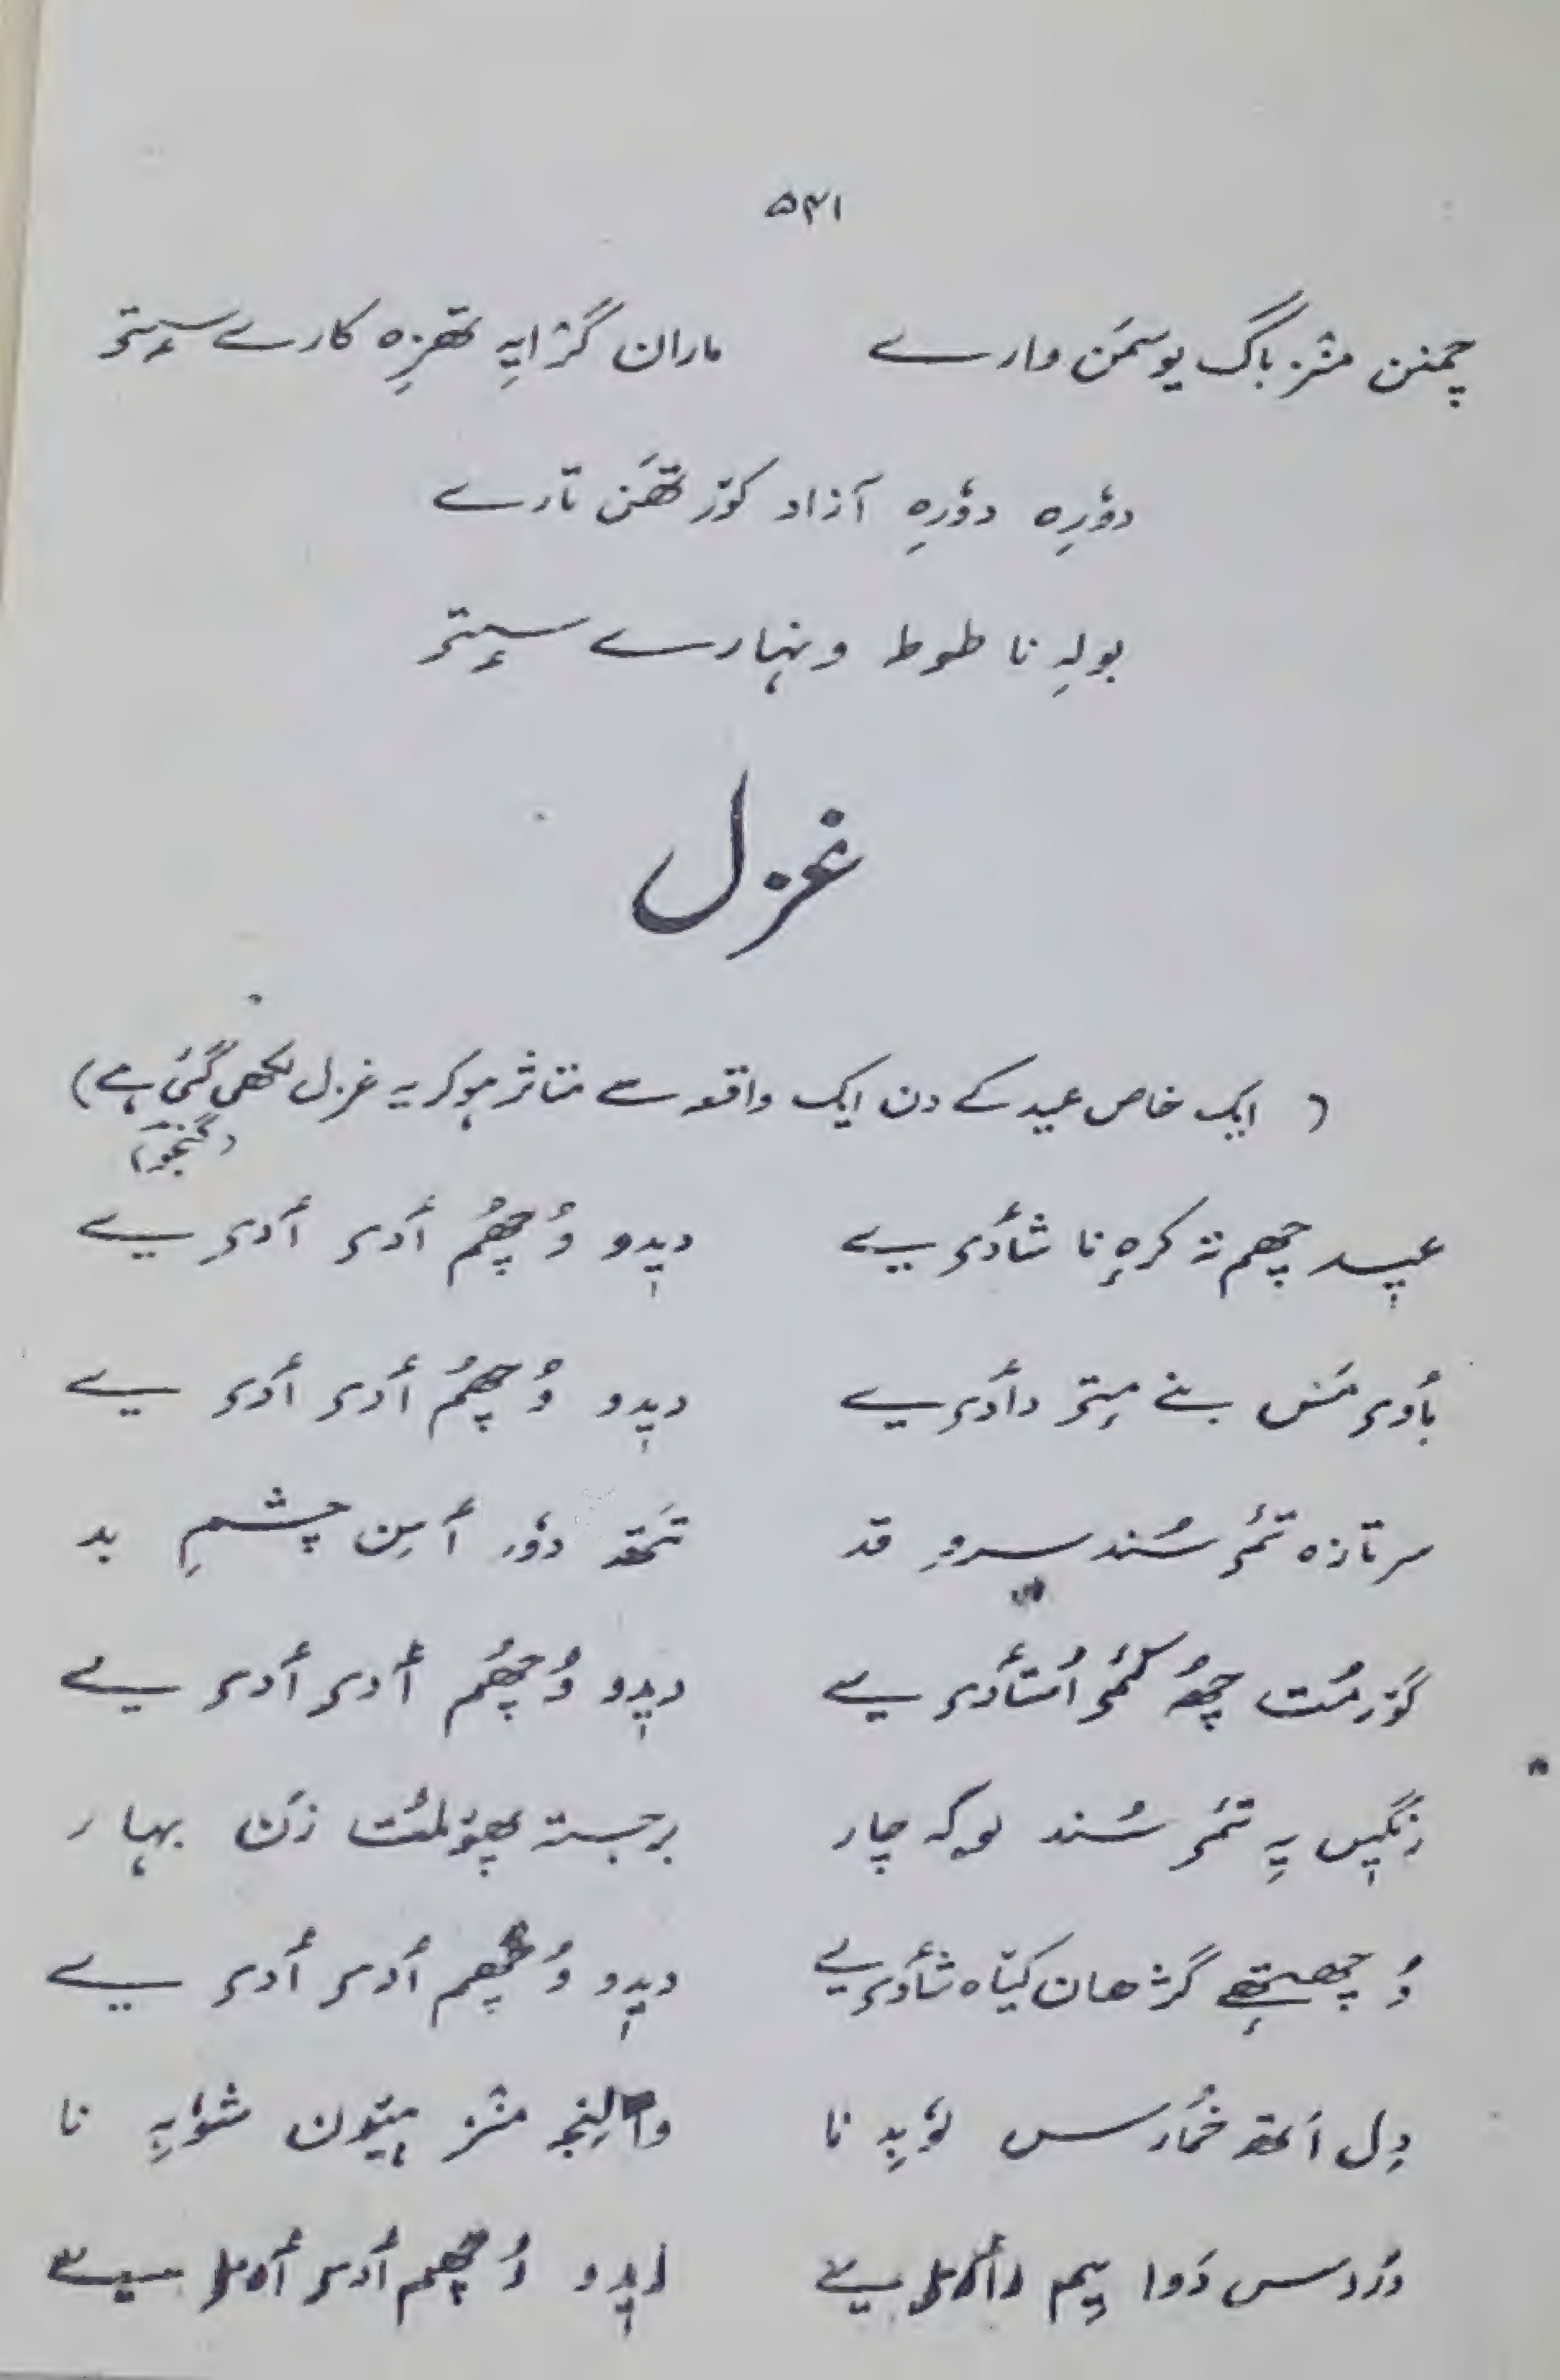 ۵۳۱
چمنن منٛز باگ یوسمَن وارے ماران گژایہِ تھزِہ کارے سٕتۍ
دوٗرِہ دوٗرِہ آزاد کوٚر تھَن تارے
بولہِ نا طوط ونہارے سٕتۍ
غزل
( ایک خاص عید کے دن ایک واقعہ سے متاثر ہوکر یہ غزل لکھی گئی ہے)
(گنجو)
عیٖد چھم نہٕ کرہٕ نا شأدی یے دیٖدو وُچھُم أدۍ أدۍ یے
بأوۍ مَس بنے میٖتۍ دأدۍ یے دیٖدو وُچھُم أدۍ أدۍ یے
سر تازہ تٔمۍ سُند سروِ قد تَتھ دوٗر أسِن چشمِ بد
گوٚرمُت چھُ کٔمۍ اُستأدۍ یے دیٖدو وُچھُم أدۍ أدۍ یے
رنگیٖن یہِ تٔمۍ سُند لوکہ چار برجستہ پھۄلمُت زَن بہار
وُچھتھٕے گژھان کیٛاہ شأدۍ یے دیٖدو وُچھم أدۍ أدۍ یے
دِل أتھ خُمارس لوٗبہِ نا والنجہِ منٛز ہیٚون شوٗبہِ نا
دَردس دَوا ییم دأدۍ یے دیٖدو وُچھم أدۍ أدۍ یے